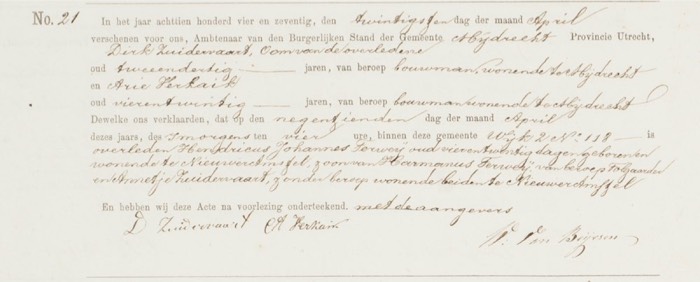 No. 21 In het jaar achttien honderd vier en zeventig, den twintigsten dag der maand April
verschenen voor ons, Ambtenaar van den Burgerlijken Stand der Gemeente Mijdrecht Provincie Utrecht,
Dirk Zuidervaart, Oom van de overledene
oud tweeendertig jaren, van beroep bouwman, wonende te Mijdrecht
en Arie Verkaik
oud vierentwintig jaren, van beroep bouwman wonende te Mijdrecht
Dewelke ons verklaarden, dat op den negentienden dag der maand April
dezes jaars, des morgens ten vier ure, binnen deze gemeente Wijk 2 No 112 is
overleden Hendricus Johannes Terweij oud vierentwintig dagen geboren en
wonende te Nieuweramstel, zoon van Harmanus Terweij van beroep
en Annetje Zuidervaart, zonder beroep wonende beiden te Nieuweramstel
En hebben wij deze Acte na voorlezing onderteekend. met de aangevers
D Zuidervaart A Verkaik